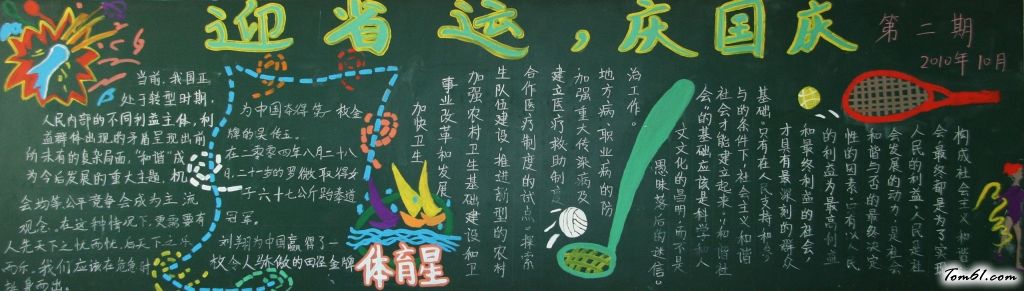 迎省运，庆国庆
第二期
2010年10月
当前，我国正
处于转型时期，
人民内部的不同利益主体，利
益群体出现的矛盾呈现出前
所未有的复杂局面，"和谐"成
为今后发展的重大主题，机
会均等公平竞争会成为主流
观念。在这种情况下，更需要有
人先天下之忧而忧，后天下之乐
而乐，我们应该在危急时
挺身而出。
为中国夺得第一枚金
牌的是
在二零零四年八月二十八
日
子六十七公斤跆拳道
冠军。
刘翔为中国赢得了一
枚令人骄傲的田径金牌
体育星
加快卫生
事业改革和发展
加强农村卫生基础建设和卫
生队伍建设，推进新型的农村
合作医疗制度的试点，探索
建立医疗救助制
加强重大传染病及
地方病、职业病的防
治工作。
思昧落后的迷信。
文文化的昌明，而不是
会"的基础应该是科学、人
社会才能建立起来，"和谐社
与的条件下，社会主义和谐
基础。只有在人民支持和参
才具有最深刻的群众
和最终利益的社会，
的利益为最高利益
性的因素，二有以人民
和谐与否的最终决定
会发展的动力，是社会
人民的利益，人民是社
会，最终都是为了实现
构成社会主义和谐
Tom61.com